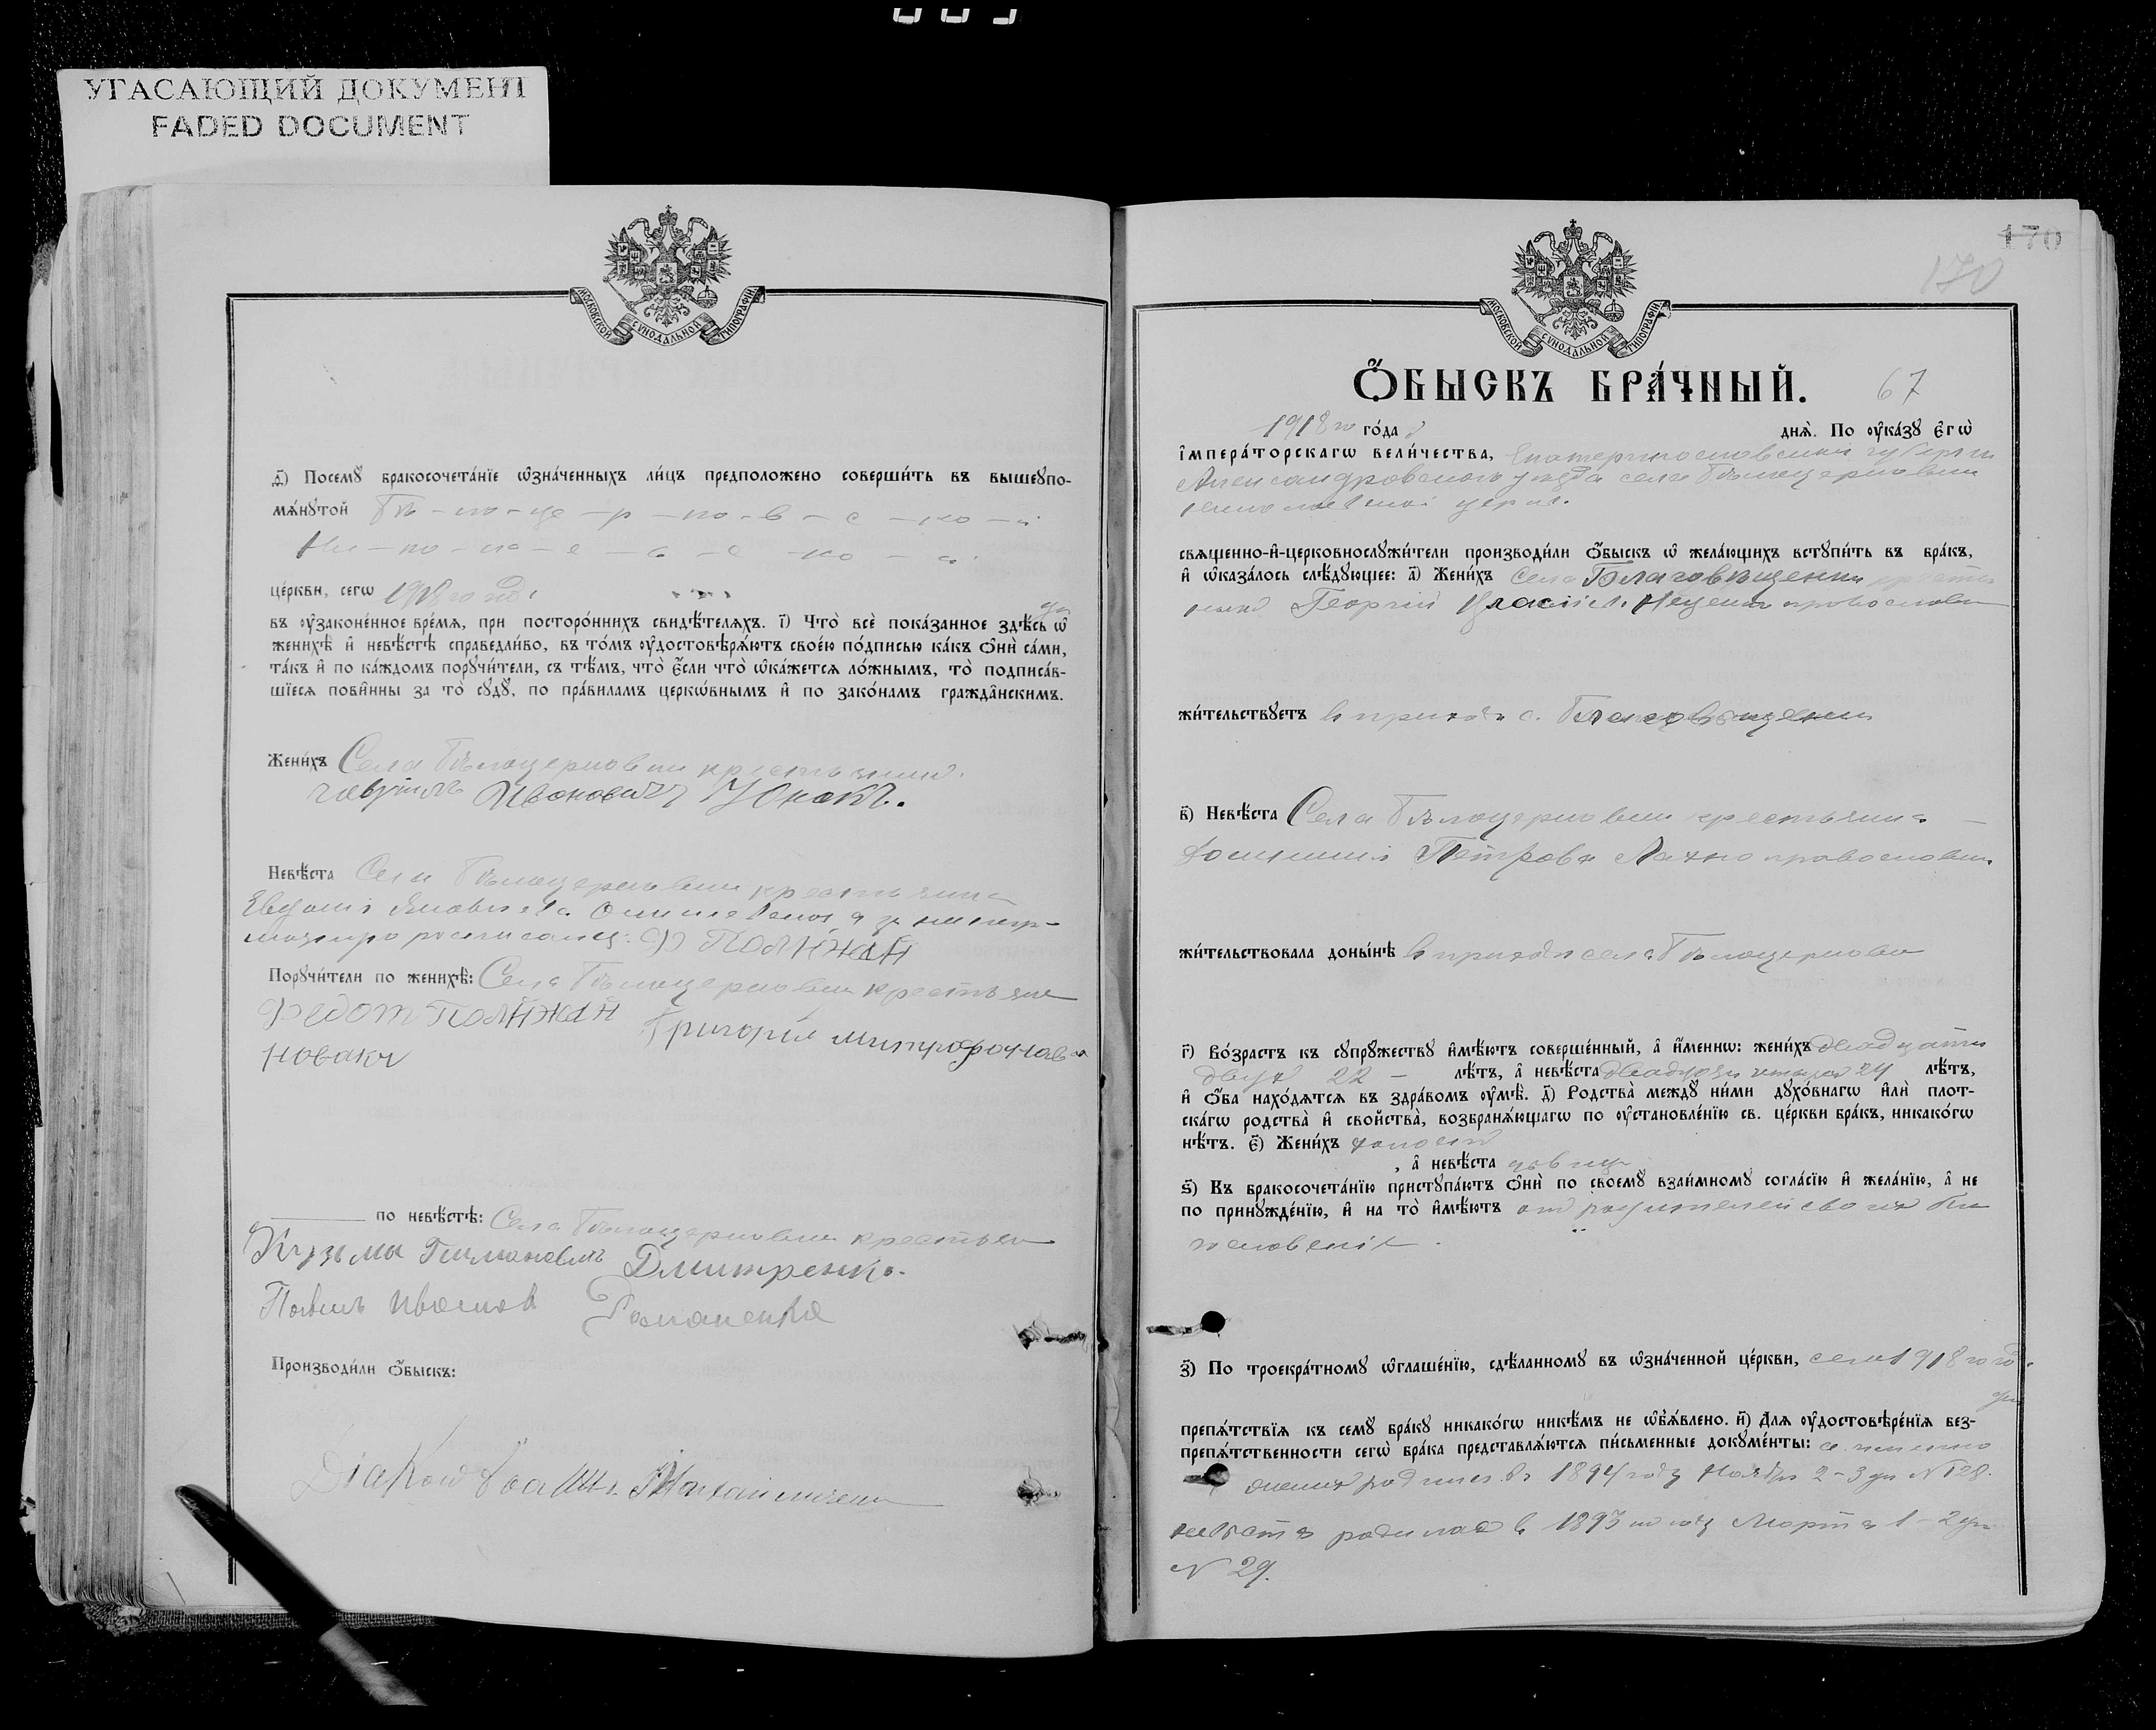 УГАСАЮЩИЙ ДОКУМЕНТ
FADED DOCUMENT
МОСКОВСКОЙ СѴНОДАЛЬНОЙ ТИПОГРАФІИ
ѳ҃) Посемꙋ̀ бракосочета́нїе ѡ҆зна́ченныхъ ли́цъ предположено соверши́ть въ вышеꙋпо-
мѧ́нꙋтой Бѣ-ло-це-р-ко-в-с-ко-й
Ни-ко-ла-е-в-с-ко-й
це́ркви, сегѡ 1918 го года
дня
въ ᲂу҆законе́нное вре́мѧ, при посторо́ннихъ свидѣ́телѧхъ. і҃) Что̀ всѐ пока́занное здѣ́сь ѡ҆
женихѣ̀ и҆ невѣ́стѣ справедли́во, въ то́мъ ᲂу҆достовѣрѧ́ютъ свое́ю по́дписью ка́къ ѻ҆нѝ са́ми,
та́къ и҆ по ка́ждомъ порꙋчи́тели, съ тѣ́мъ, что̀ є҆́сли что̀ ѡ҆ка́жетсѧ ло́жнымъ, то̀ подписа́в-
шїесѧ пови́нны за то̀ сꙋдꙋ̀, по пра́виламъ церко́внымъ и҆ по зако́намъ гражда́нскимъ.
Жени́хъ Села Бѣлоцерковки крестьянин
Иванович Юнакъ.
Невѣ́ста Села Бѣлоцерковки крестьянка
Ф Полйжай
Порꙋчи́тели по женихѣ̀: Села Бѣлоцерковки крестьяне
Федот Полйжай Григорій Митрофанов
Новакъ
по невѣ́стѣ: Села Бѣлоцерковки крестьяне
Кузьма Дмитренко.
Павелъ Иванов Романенко
Производи́ли ѻ҆́быскъ:
Діаконъ
170
170
МОСКОВСКОЙ СѴНОДАЛЬНОЙ ТИПОГРАФІИ
Ѻ҆́БЫСКЪ БРА́ЧНЫЙ. 67
1918 го го́да днѧ̀. По ᲂу҆ка́зꙋ є҆гѡ̀
і҆мпера́торскагѡ вели́чества, Екатеринославской губерніи
Александровскаго уѣзда села Бѣлоцерковки
Николаевской церкви
свѧщенно-и҆-церковнослꙋжи́тели производи́ли ѻ҆́быскъ ѡ҆ жела́ющихъ встꙋпи́ть въ бра́къ,
и҆ ѡ҆каза́лось слѣ́дꙋющее: а҃) Жени́хъ Села Благовѣщенки
Георгій православн
жи́тельствꙋетъ в приходѣ с. Благовѣщенки
в҃) Невѣ́ста Села Бѣлоцерковки крестьянка
Петрова Лахно православн.
жи́тельствовала доны́нѣ в приходѣ села Бѣлоцерковки
г҃) Во́зрастъ къ сꙋпрꙋ́жествꙋ и҆мѣ́ютъ соверше́нный, а҆ и҆́меннѡ: жени́хъ двадцати
двух 22 – лѣ́тъ, а҆ невѣ́ста двадцати четырех 24 лѣ́тъ,
и҆ ѻ҆́ба нахо́дѧтсѧ въ здра́вомъ ᲂу҆мѣ̀. д҃) Родства̀ междꙋ̀ ни́ми дꙋхо́внагѡ и҆лѝ плот-
ска́гѡ родства̀ и҆ свойства̀, возбранѧ́ющагѡ по ᲂу҆становле́нїю св. це́ркви бра́къ, никако́гѡ
нѣ́тъ. є҃) Жени́хъ холостъ
, а҆ невѣ́ста девица
ѕ҃) Къ бракосочета́нїю пристꙋпа́ютъ ѻ҆нѝ по своемꙋ̀ взаи́мномꙋ согла́сїю и҆ жела́нїю, а҆ не
по принꙋжде́нїю, и҆ на то̀ и҆мѣ́ютъ от родителей своих бла
гословеніе.
з҃) По троекра́тномꙋ ѡ҆глаше́нїю, сдѣ́ланномꙋ въ ѡ҆зна́ченной це́ркви, сего 1918 го года
дня
препѧ́тствїѧ къ семꙋ̀ бра́кꙋ никако́гѡ никѣ́мъ не ѡ҆б̾ѧ́влено. и҃) Длѧ ᲂу҆достовѣре́нїѧ без-
препѧ́тственности сегѡ̀ бра́ка представлѧ́ютсѧ пи́сьменные докꙋме́нты: а именно
жених родился в 1894 году Ноября 2–3 дн №128.
невѣста родилась в 1893 го году Марта 1–2 дн
№ 29.